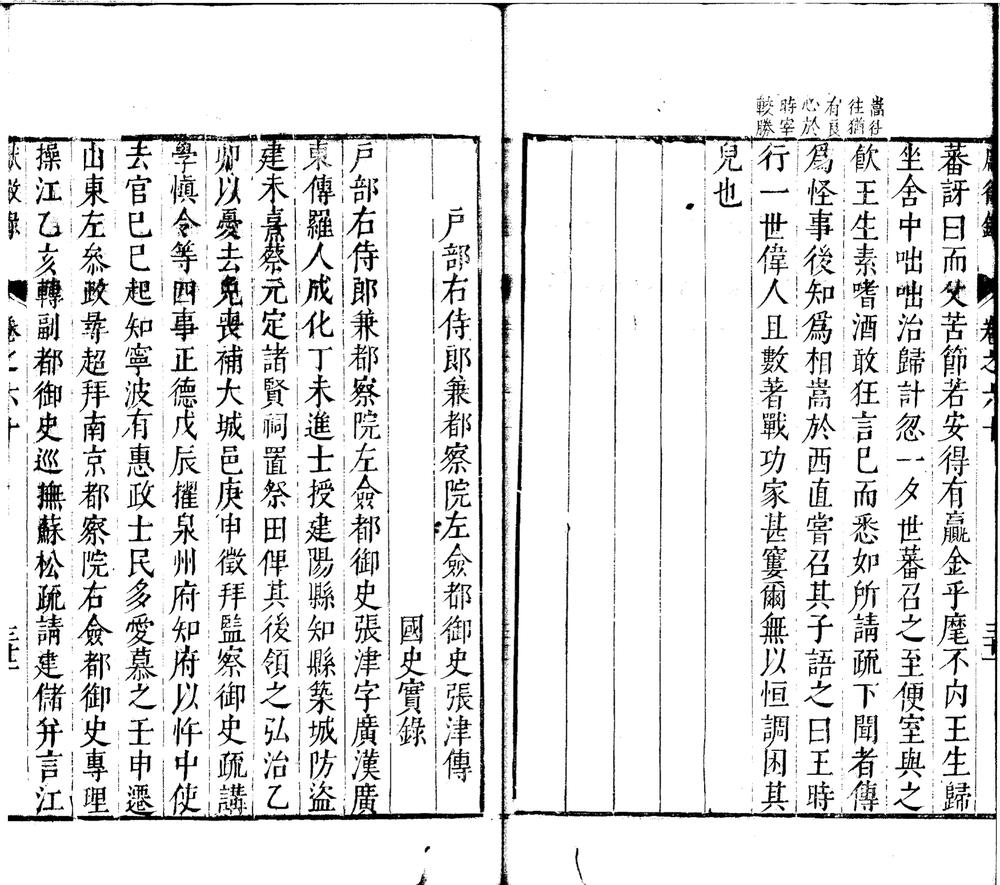 嵩往
往猶
有良
心於
時宰
較勝
蕃訝曰而父苦節若安得有贏金乎麾不内王生歸
坐舍中咄咄治歸計忽一夕世蕃召之至便室與之
飮王生素嗜酒敢狂言已而悉如所請疏下聞者傳
爲怪事後知爲相嵩於西直嘗召其子語之曰王時
行一世偉人且數著戰功家甚窶爾無以恒調困其
兒也
卷之六十
戶部右侍郎兼都察院左僉都御史張津傳
國史實錄
戶部右侍郎兼都察院左僉都御史張津字廣漢廣
東傳羅人成化丁未進士授建陽縣知縣築城防盜
建朱熹蔡元定諸賢祠置祭田俾其後領之弘治乙
卯以憂去免喪補大城邑庚申徵拜監察御史疏講
學愼令等四事正德戊辰擢泉州府知府以忤中使
去官已巳起知寧波有惠政士民多愛慕之壬申遷
山東左叅政尋超拜南京都察院右僉都御史專理
操江乙亥轉副都御史巡撫蘇松疏請建儲幷言江
獻徵錄
卷之六十